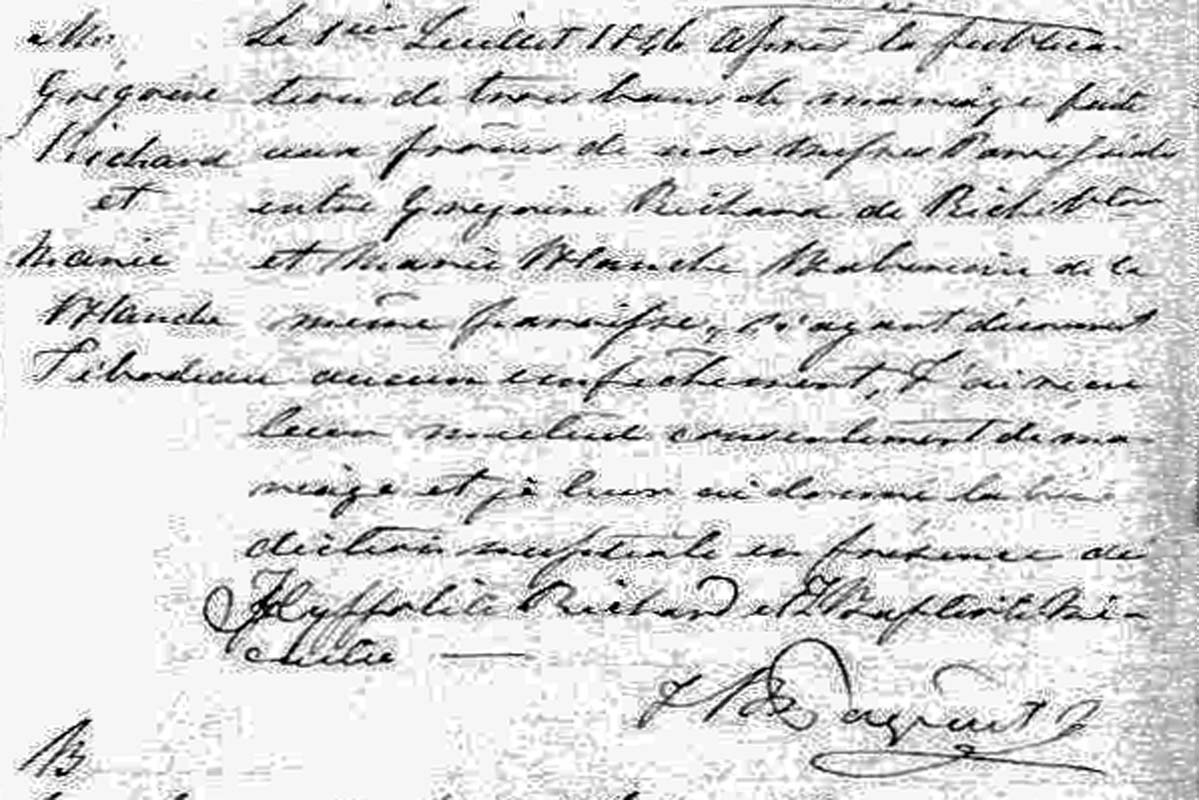 M.
Grégoire
Richard
et
Marie
Blanche
Tibodeau
Le 1ier Juillet 1846 Après la publica-
tion de trois bans de mariage faite
aux prônes de nos messes Paroissiales
entre Gregoire Richard de Richibtou
et Marie Blanche de la
même paroisse, n'ayant découvert
aucun empêchement, J'ai reçu
leur mutuel consentement de ma-
riage et je leur ai donné la béné-
diction nuptiale en présence de
Hyppolite Richard et J Baptiste Mé-
J Bte
B